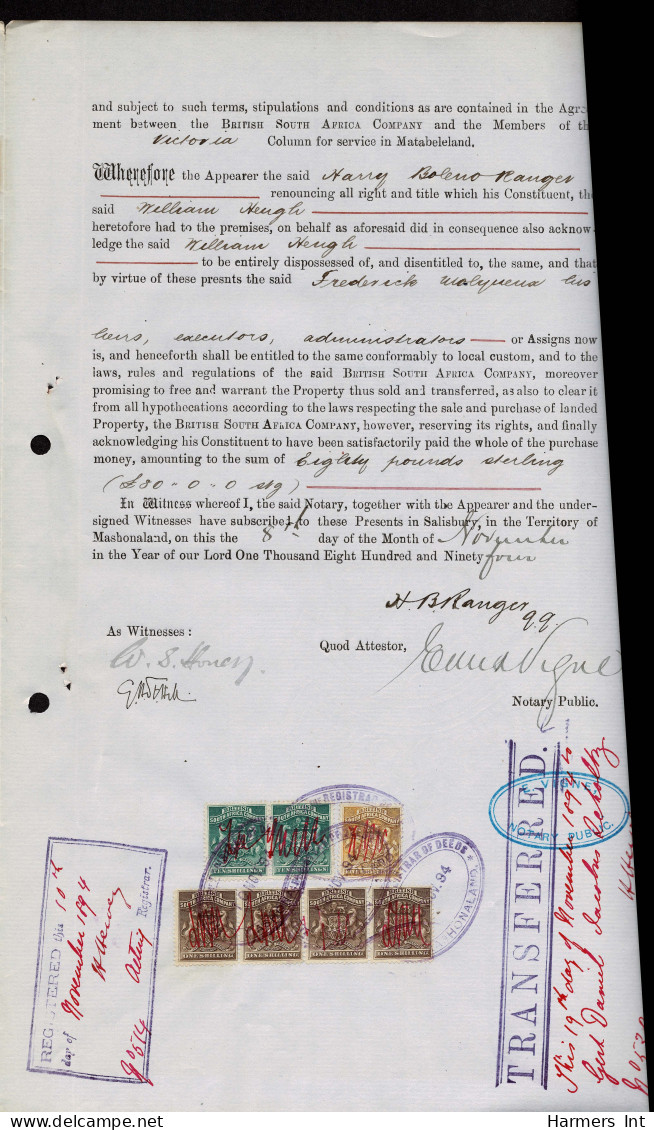 and subject to such terms, stipulations and conditions as are contained in the Agree
ment between the BRITISH SOUTH AFRICA COMPANY and the Members of th
Victoria Column for service in Matabeleland.
Wherefore the Appearer the said Harry Boleno Ranger
renouncing all right and title which his Constituent, the
said William Heugh
heretofore had to the premises, on behalf as aforesaid did in consequence also acknow-
ledge the said William Heugh
to be entirely dispossessed of, and disentitled to, the same, and that
by virtue of these presnts the said Frederick his
heirs, executors, administrators or Assigns now
is, and henceforth shall be entitled to the same conformably to local custom, and to the
laws, rules and regulations of the said BRITISH SOUTH AFRICA COMPANY, moreover
promising to free and warrant the Property thus sold and transferred, as also to clear it
from all hypothecations according to the laws respecting the sale and purchase of landed
Property, the BRITISH SOUTH AFRICA COMPANY, however, reserving its rights, and finally
acknowledging his Constituent to have been satisfactorily paid the whole of the purchase
money, amounting to the sum of Eighty pounds sterling
(£80-0-0 stg)
In Witness whereof I, the said Notary, together with the Appearer and the under-
signed Witnesses have subscribed to these Presents in Salisbury, in the Territory of
Mashonaland, on this the 8th day of the Month of November
in the Year of our Lord One Thousand Eight Hundred and Ninety four
H. B. Ranger
q.q.
As Witnesses:
Quod Attestor,
W. S. Honey
Notary Public.
E VIGNE
NOTARY PUBLIC.
TRANSFERRED.
This 19th day of November 1894 to
Gert Daniel Jacobus Scholtz
REGISTERED this 10th
day of November 1894
H Hervey
Acting Registrar.
No 514
BRITISH
SOUTH AFRICA COMPANY
TEN SHILLINGS
TEN SHILLINGS
REGISTRAR OF DEEDS
MASHONALAND.
ONE SHILLING
ONE SHILLING
ONE SHILLING
ONE SHILLING
Harmers Int Harmers Int Harmers Int